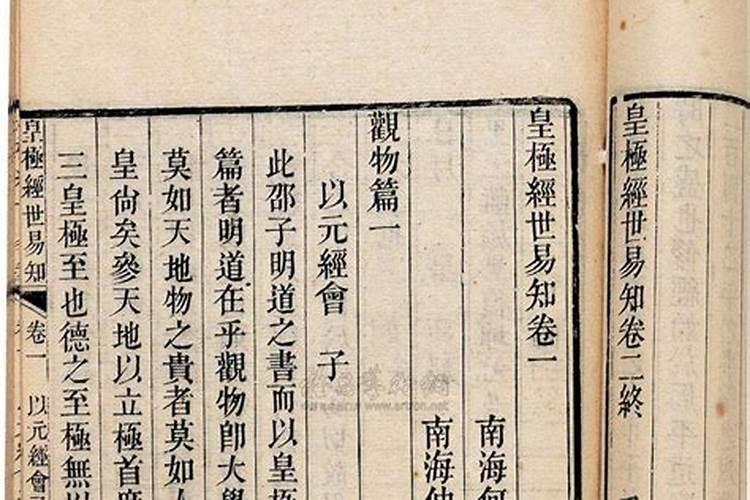 皇極經世易知卷二終
皇極經世易知卷一
南海何
南海仲
觀物篇一
以元經會 子
此邵子明道之書而以皇極
篇者明道在乎觀物卽大學
莫如天地物之貴者莫如人
皇尙矣參天地以立極首度
三皇極至也德之至極無以
皇極經世易知 卷一 以元經會
www.artron.net